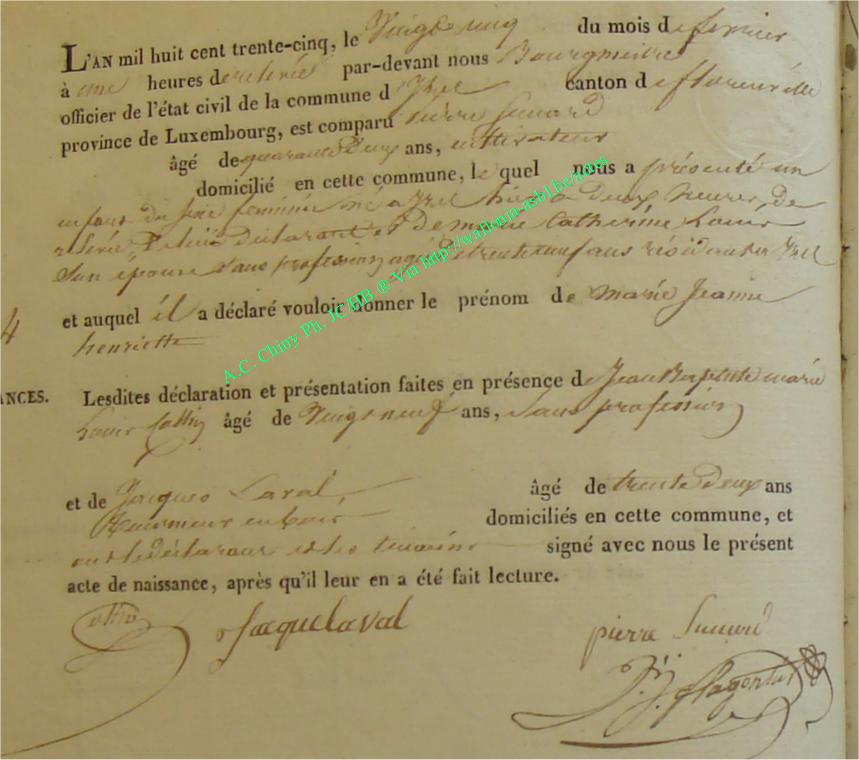 L'AN mil huit cent trente-cinq, le Vingt cinq du mois de fevrier
à une heures de relevée par-devant nous Bourgmestre
officier de l'état civil de la commune d'Izel canton de florenville
province de Luxembourg, est comparu pierre Sunard
âgé de quarante deux ans, cultivateur
domicilié en cette commune, lequel nous a présenté un
enfant du sexe feminin né a Izel hier a deux heures de
relevée, De lui déclarant et De marie Catherine Louis
son épouse sans profession agée De trente neuf ans résidants a Izel
et auquel il a déclaré vouloir donner le prénom de marie Jeanne
4
henriette
ANCES. Lesdites déclaration et présentation faites en présence de Jean Baptiste marie
Louis âgé de Vingt neuf ans, Sans profession
et de Jacques Laval, âgé de trente deux ans
en bois domiciliés en cette commune, et
ont le déclarant et les témoins signé avec nous le présent
acte de naissance, après qu'il leur en a été fait lecture.
Jacque Laval pierre Sunard
A.C. Chiny Ph. JC HB ® Via http://wallonia-asbl.be/notes